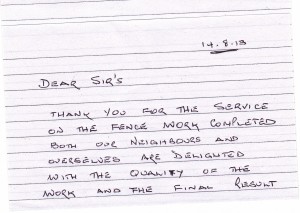 14.8.13
DEAR SIR'S
THANK YOU FOR THE SERVICE
ON THE FENCE WORK COMPLETED
BOTH OUR NEIGHBOURS AND
OURSELVES ARE DELIGHTED
WITH THE QUALITY OF THE
WORK AND THE FINAL RESULT